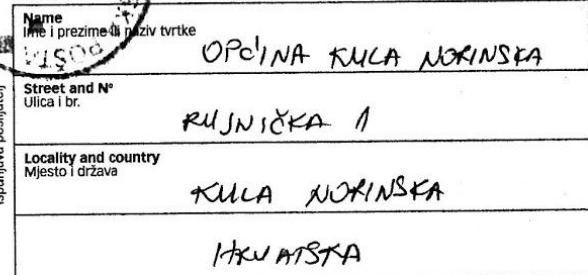 Name
Ime i prezime ili naziv tvrtke
POŠTA
OPĆINA KULA NORINSKA
Street and N°
Ulica i br.
RUJNIČKA 1
Locality and country
Mjesto i država
KULA NORINSKA
HRVATSKA